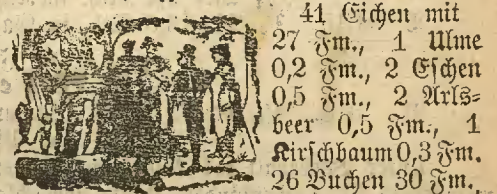 41 Eichen mit
27 Fm., 1 Ulme
0,2 Fm., 2 Eschen
0,5 Fm., 2 Arls⸗
beer 0,5 Fm., 1
Kirschbaum 0,3 Fm.
26 Buchen 30 Fm.